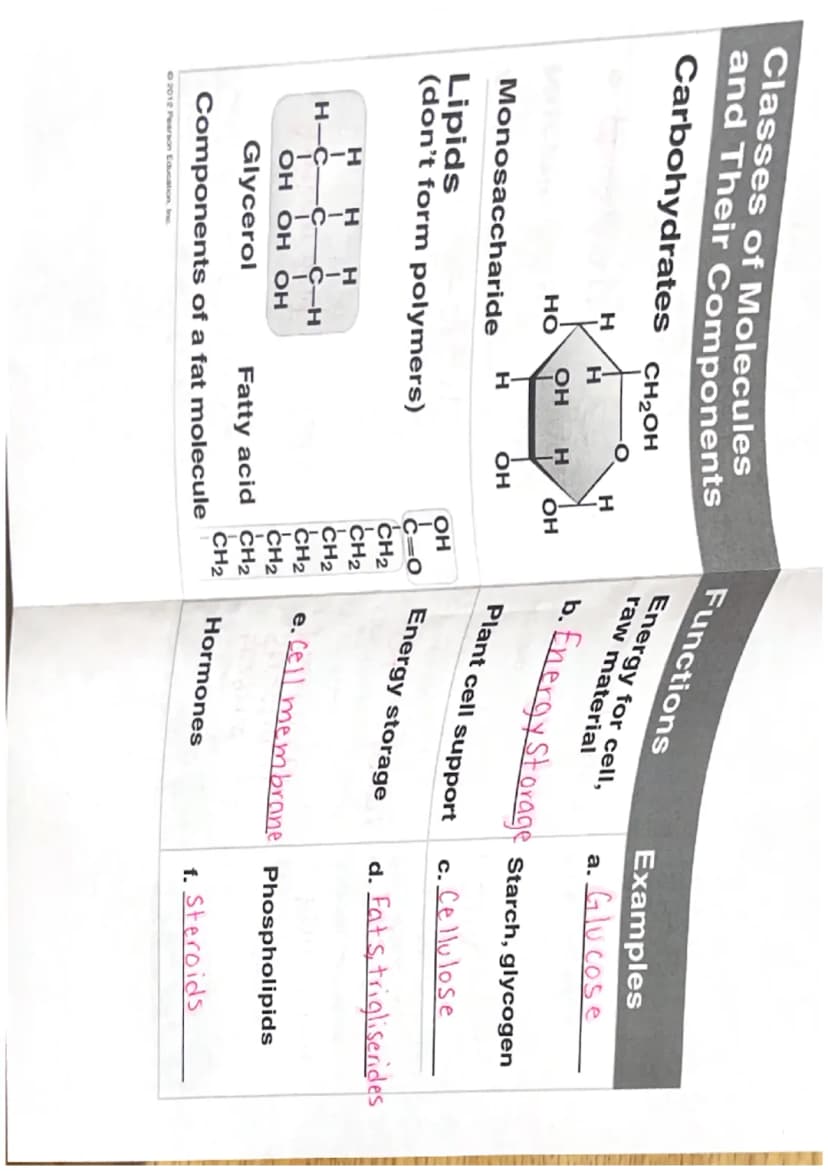 Classes of Molecules
and Their Components
Functions
Examples
Carbohydrates
CH₂OH
O
H
H
H
OH
H
HO
OH
H
OH
Monosaccharide
Energy for cell,
raw material
a. Glucose
b. Energy Storage
Starch, glycogen
Plant cell support
c. Cellulose
Lipids
(don't form polymers)
H H H
H–C–C–C–H
OH OH OH
Glycerol
Fatty acid
OH
C=O
CH₂
CH₂
CH₂
CH₂
CH₂
CH₂
CH₂
Components of a fat molecule
Energy storage
d. Fats, trigliserides
e. Cell membrane
Phospholipids
Hormones
f. Steroids
© 2012 Pearson Education, Inc.